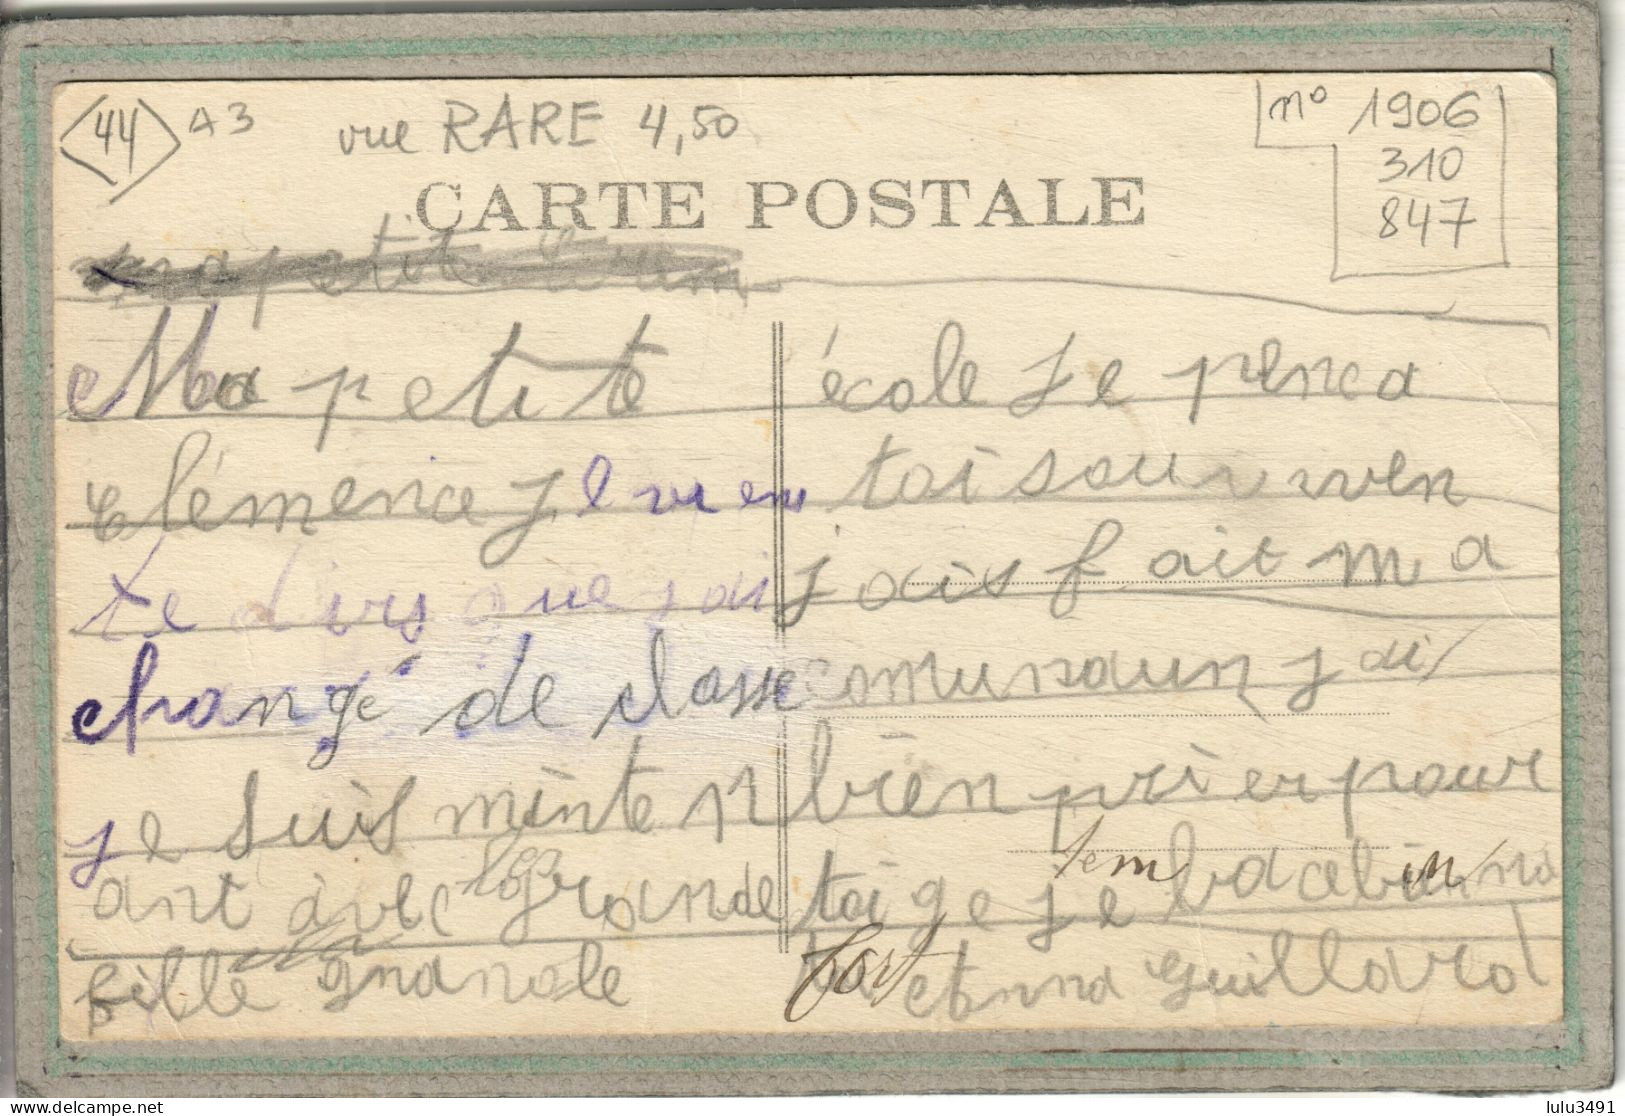 44 A3 vue RARE 4,50
n° 1906
310
847
CARTE POSTALE
ma petite
Ma petite
Clémence je viens
te dirs que jai
changé de classe
je suis minten
ant àvec les grande
fille grande
école je pença
toi souvven
jais fait ma
comunaun jai
bien prier pour
toi ge je
t'em
fort
Anna Guillard
lulu3491